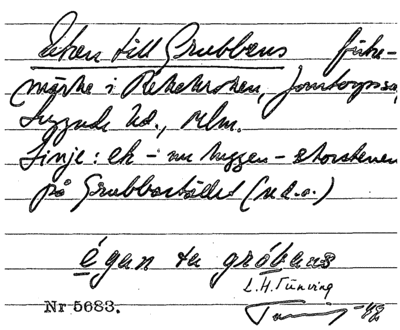 Eken till Grubbens fiske-
märke i Rekekroken, Jonstorps sn,
Luggude hd., Mlm.
Linje: ek - nu huggen - skorstenen
på Grubbastället (n.d.o.)
égan te gróbens
L. H. Tunving
Nr 5683.
-48